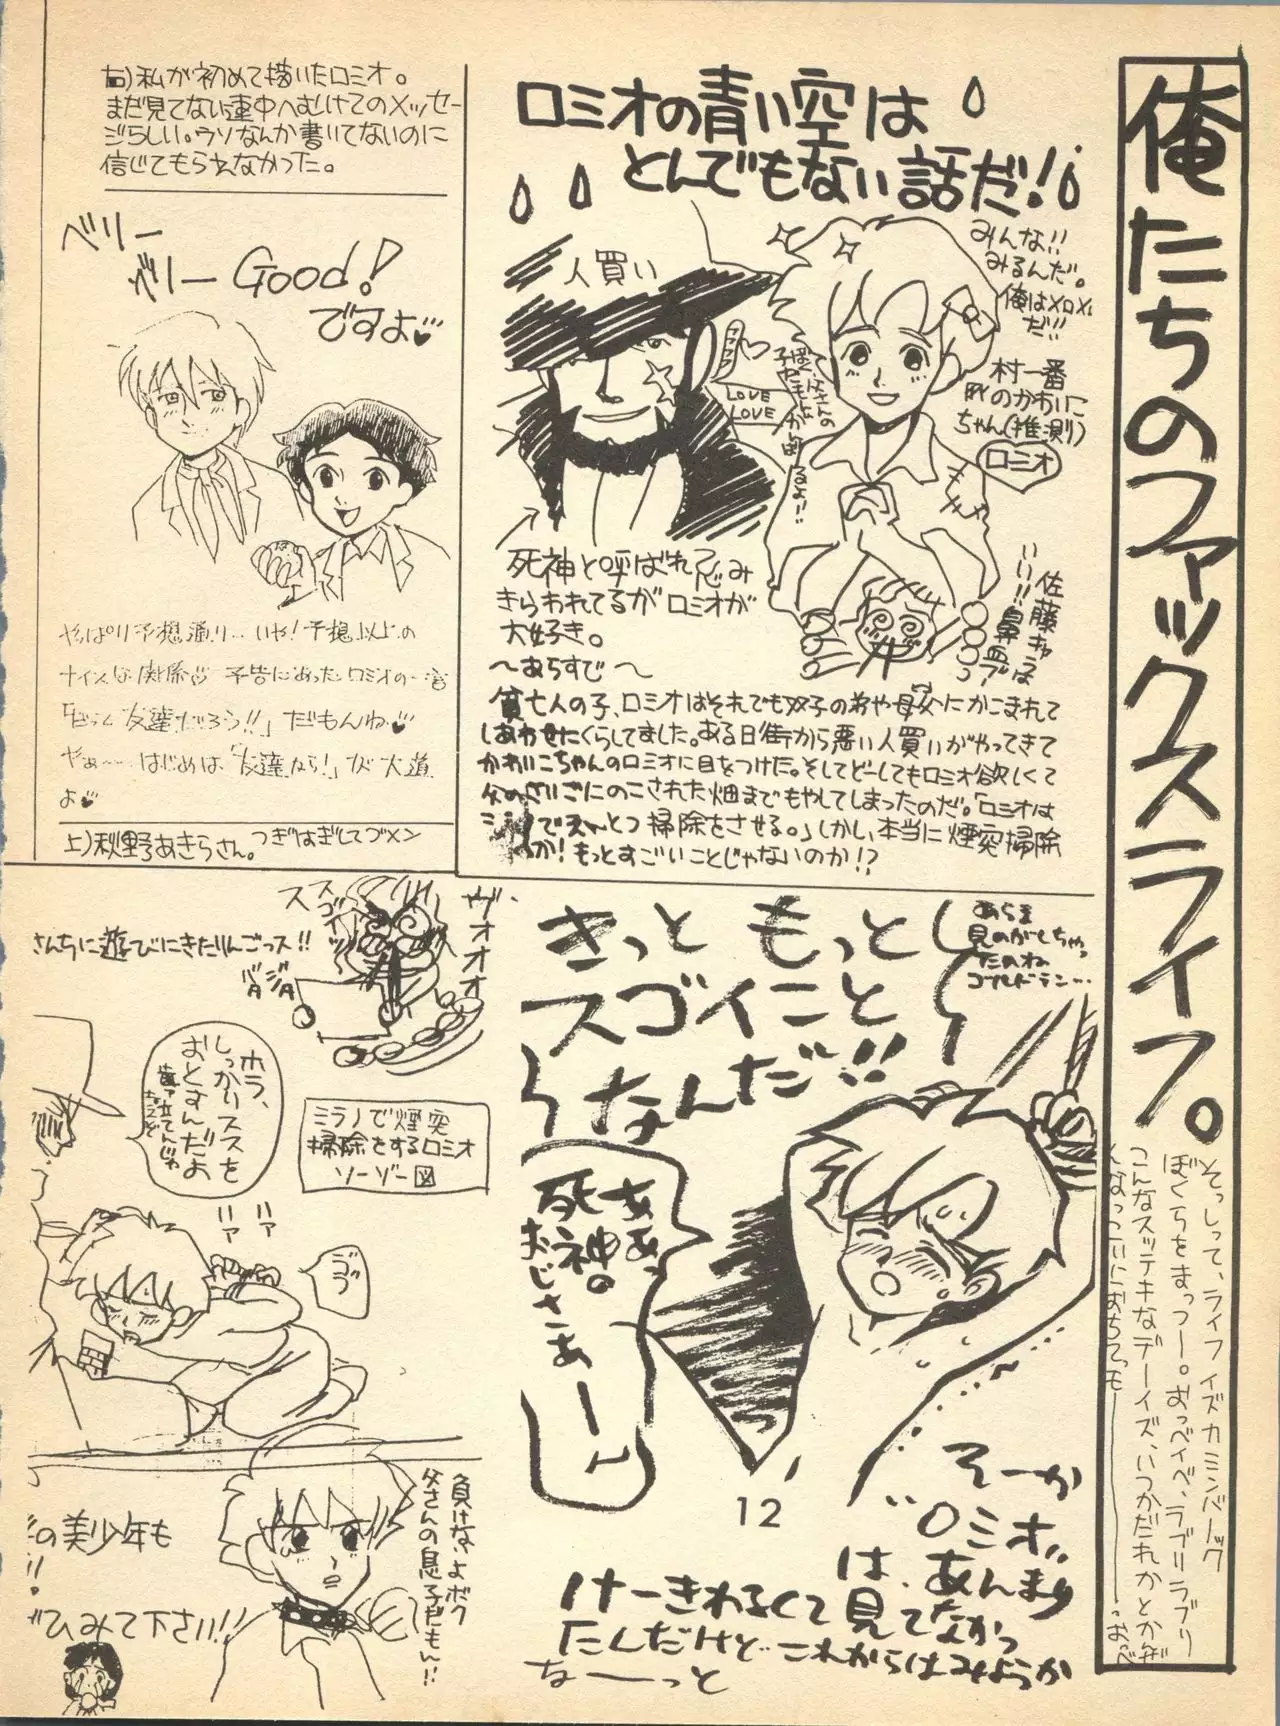 俺たちのファックスライフ。
そっしって、ライフ イズ カミンバーック
ぼくらをまっつー。おっベイベ、ラブリラブリ
こんなステキなデーイズ、いつかだれかとかぜ
ロミオの青い空は
とんでもない話だ!
人買い
みんな!!
みるんだ。
俺はメロメロ
だ!!
村一番
のかわいこ
ちゃん(推測)
ロミオ
LOVE
LOVE
佐藤キャラは
いい!!鼻血ブー
死神と呼ばれて忌み
きらわれてるがロミオが
大好き。
〜あらすじ〜
貧乏人の子、ロミオはそれでも双子の弟や母父にかこまれて
しあわせにくらしてました。ある日街から悪い人買いがやってきて
かわいこちゃんのロミオに目をつけた。そしてどーしてもロミオ欲しくて
父のさいごにのこされた畑までもやしてしまったのだ。「ロミオは
ミラノでえんとつ掃除をさせる。」しかし、本当に煙突掃除
か!もっとすごいことじゃないのか!?
右)私が初めて描いたロミオ。
まだ見てない連中へむけてのメッセー
ジらしい。ウソなんか書いてないのに
信じてもらえなかった。
ベリー
ベリーGood!
ですよ♥
やっぱり予想通り…いや!予想以上の
ナイスな関係 予告にあったロミオの一言
友達だろう!!」だもんね♥
やぁ〜…はじめは「友達から!」が大道
よ♥
上)秋野あきらさん。つぎはぎしてゴメン
きっと もっと
スゴイこと
なんだ!!
あらま
見のがしちゃっ
たのね
ゴールドテン…
ああっ
死神。
おじさあーーん
そーか
ロミオ
は、あんまり
けーきわるくて見てなかっ
たんだけど これからはみようか
なーーっと
12
スゴイッス
ヴォオオオ
さんちに遊びにきたりんごっス!!
バタ
ジタ
ミラノで煙突
掃除をするロミオ
ソーゾー図
ホラ、
しっかりススを
おとすんだよ
歯ァ立てんじゃ
ねぇぞ
ハァ
ハァ
ゴブ
負けないよボク
父さんの息子だもん!!
の美少年も
!!
ぜひみて下さい!!